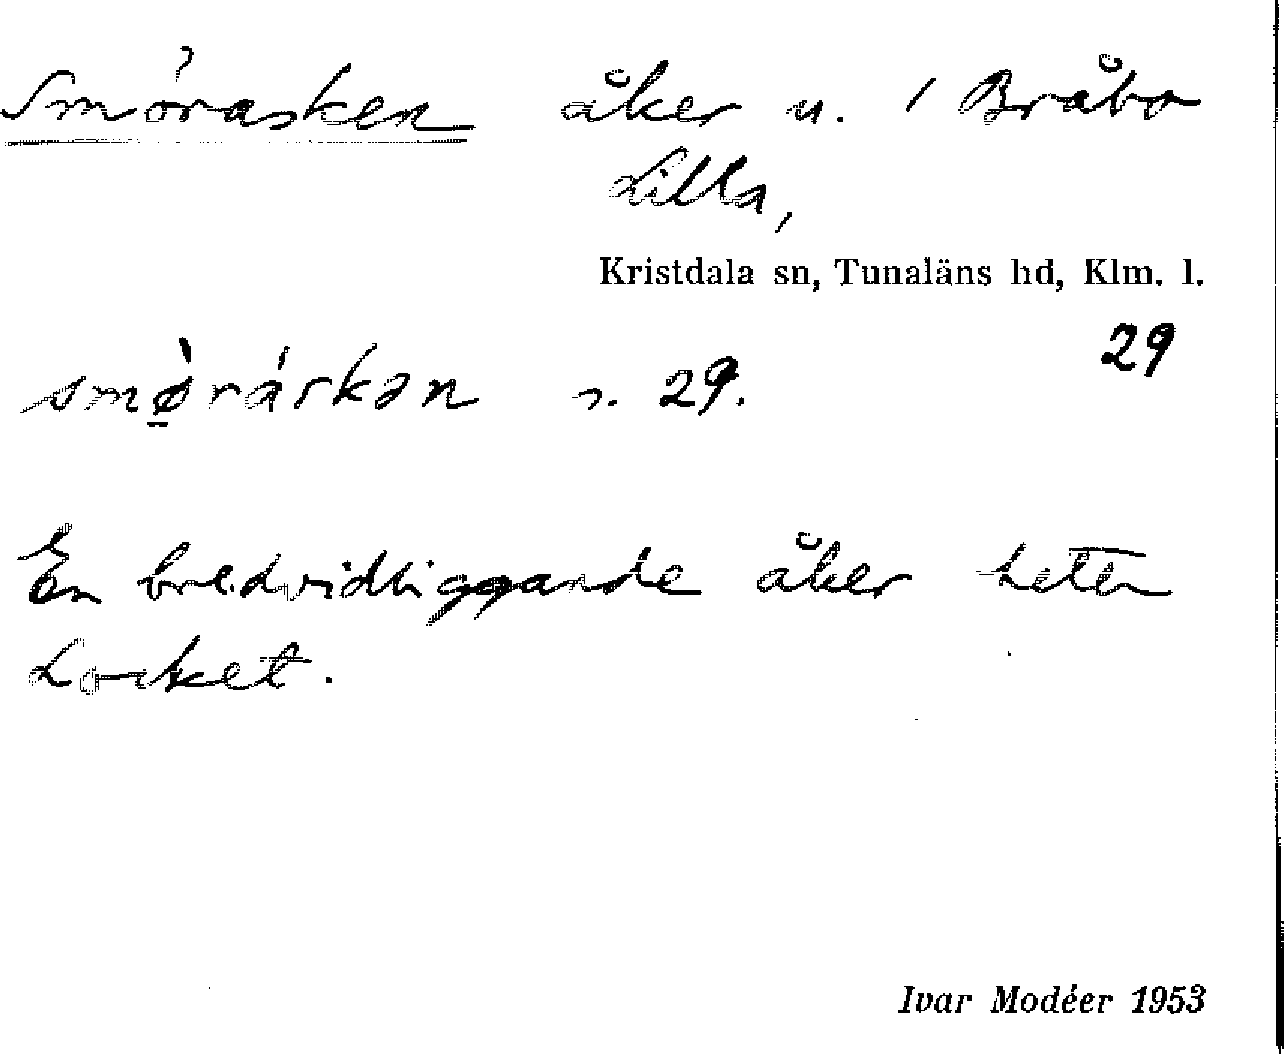 Smörasken åker u. / Bråbo
Lilla,
Kristdala sn, Tunaläns hd, Klm. l.
29
smø̀ráskən s. 29.
En bredvidliggande åker heter
Locket.
Ivar Modéer 1953